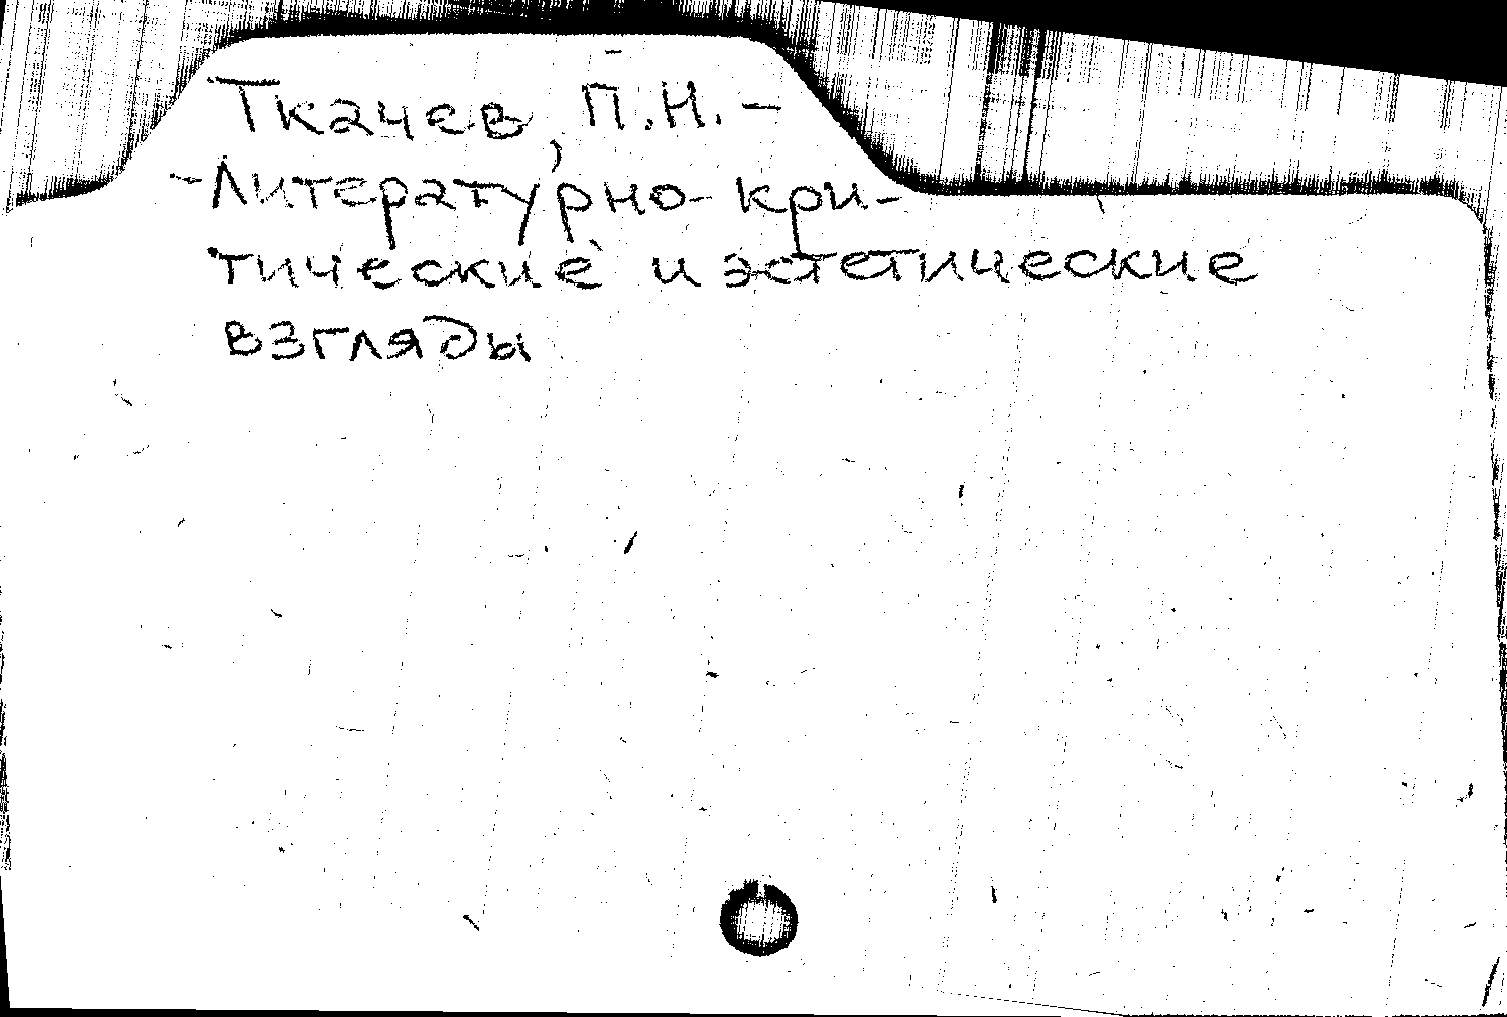 Ткачев, П.Н. –
- Литературно-кри-
тические и эстетические
взгляды